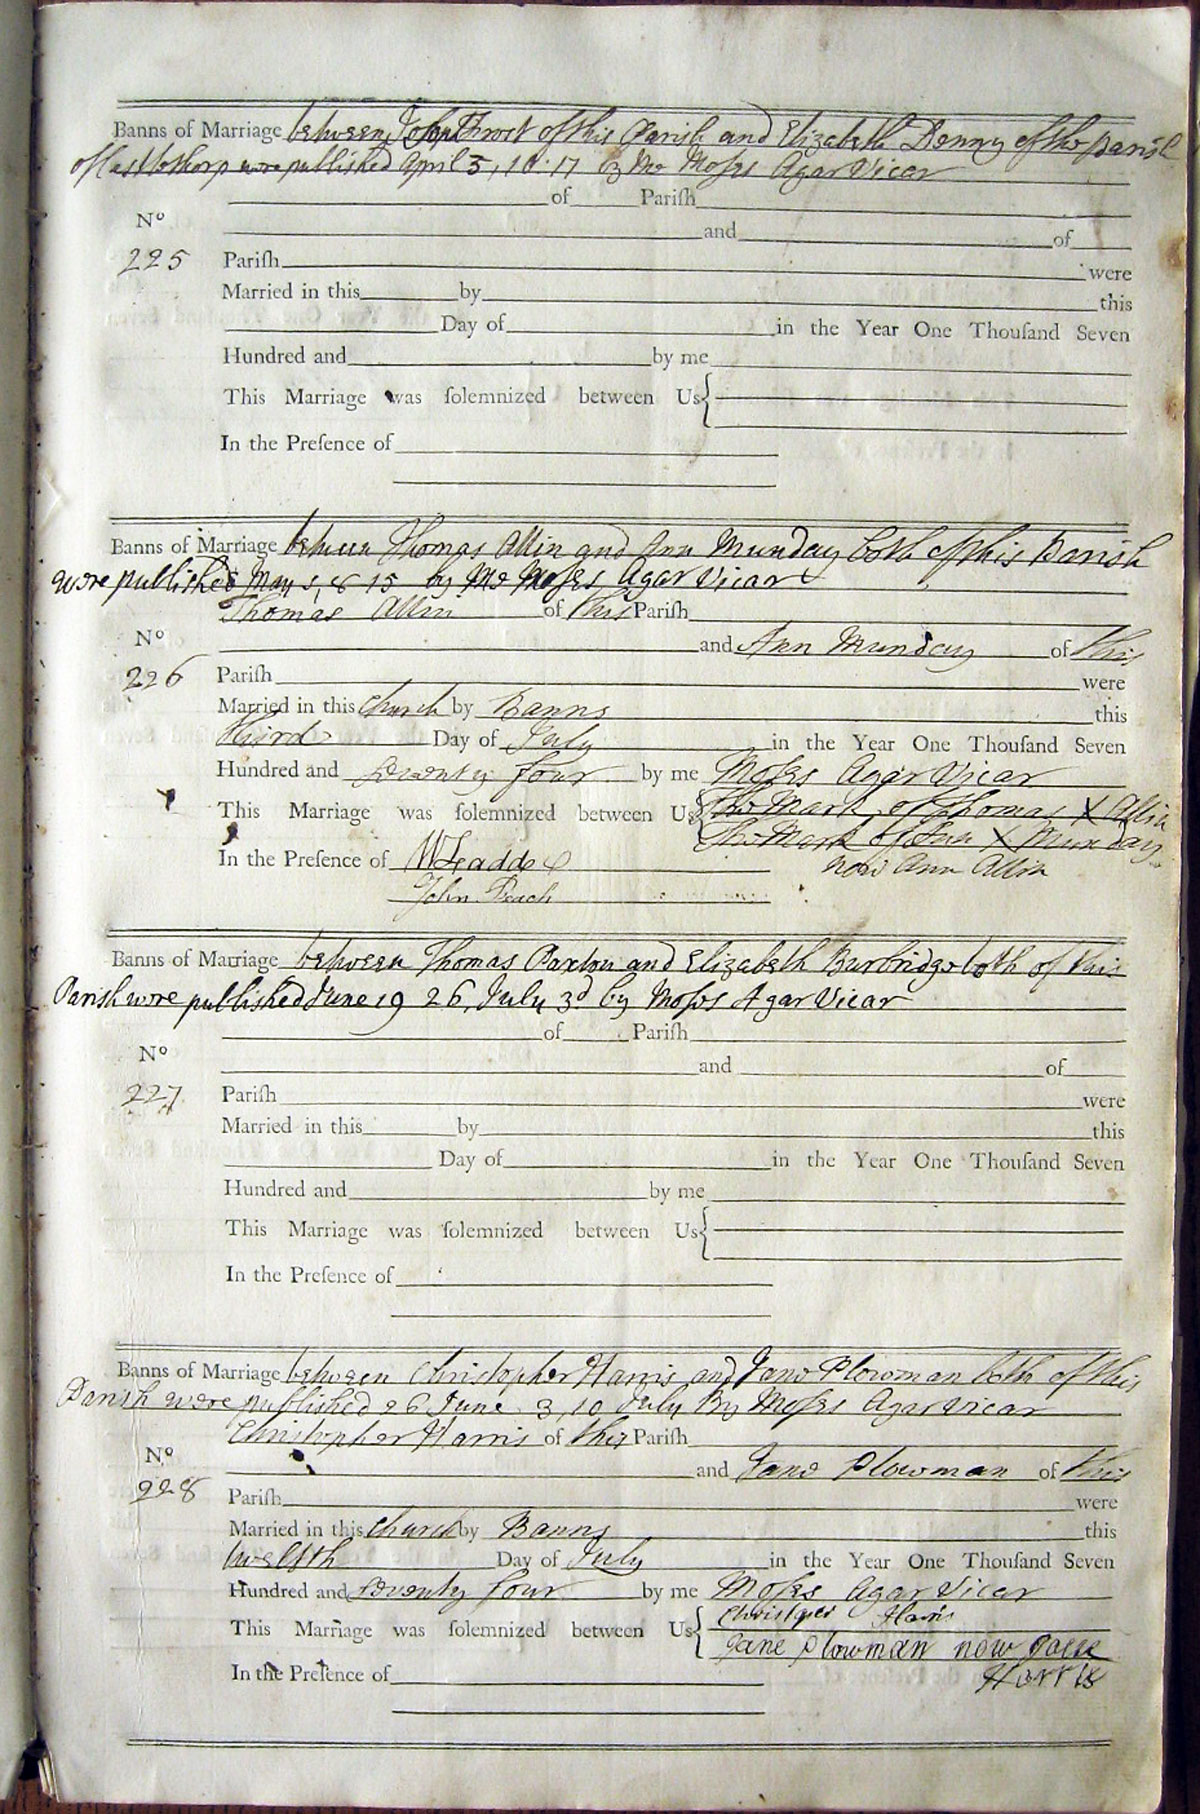 Banns of Marriage between John Frost of this Parish and Elizabeth Denny of the Parish
of Castlethorp were published April 3, 10. 17 by Me Moses Agar Vicar
of Pariſh
Nº
and of
225
Pariſh were
Married in this by this
Day of in the Year One Thouſand Seven
Hundred and by me
This Marriage was ſolemnized between Us
In the Preſence of
Banns of Marriage between Thomas Allin and Ann Munday both of this Parish
were published May 1, 8 15 by Me Moses Agar Vicar
Thomas Allin of this Pariſh
Nº
and Ann Munday of this
226
Pariſh were
Married in this Church by Banns this
third Day of July in the Year One Thouſand Seven
Hundred and Seventy four by me Moses Agar Vicar
This Marriage was ſolemnized between Us The Mark of Thomas X Allin
The Mark of Ann X Munday
now Ann Allin
In the Preſence of W Leadde
John Peach
Banns of Marriage between Thomas Paxton and Elizabeth Burbridge both of this
Parish were published June 19 26, July 3d by Moses Agar Vicar
of Pariſh
Nº
and of
227
Pariſh were
Married in this by this
Day of in the Year One Thouſand Seven
Hundred and by me
This Marriage was ſolemnized between Us
In the Preſence of
Banns of Marriage between Christopher Harris and Jane Plowman both of this
Parish were published 26 June 3, 10 July By Moses Agar Vicar
Christopher Harris of this Pariſh
Nº
and Jane Plowman of this
228
Pariſh were
Married in this Church by Banns this
twelfth Day of July in the Year One Thouſand Seven
Hundred and Seventy four by me Moses Agar Vicar
This Marriage was ſolemnized between Us Harris
Jane Plowman now Jane
Harris
In the Preſence of